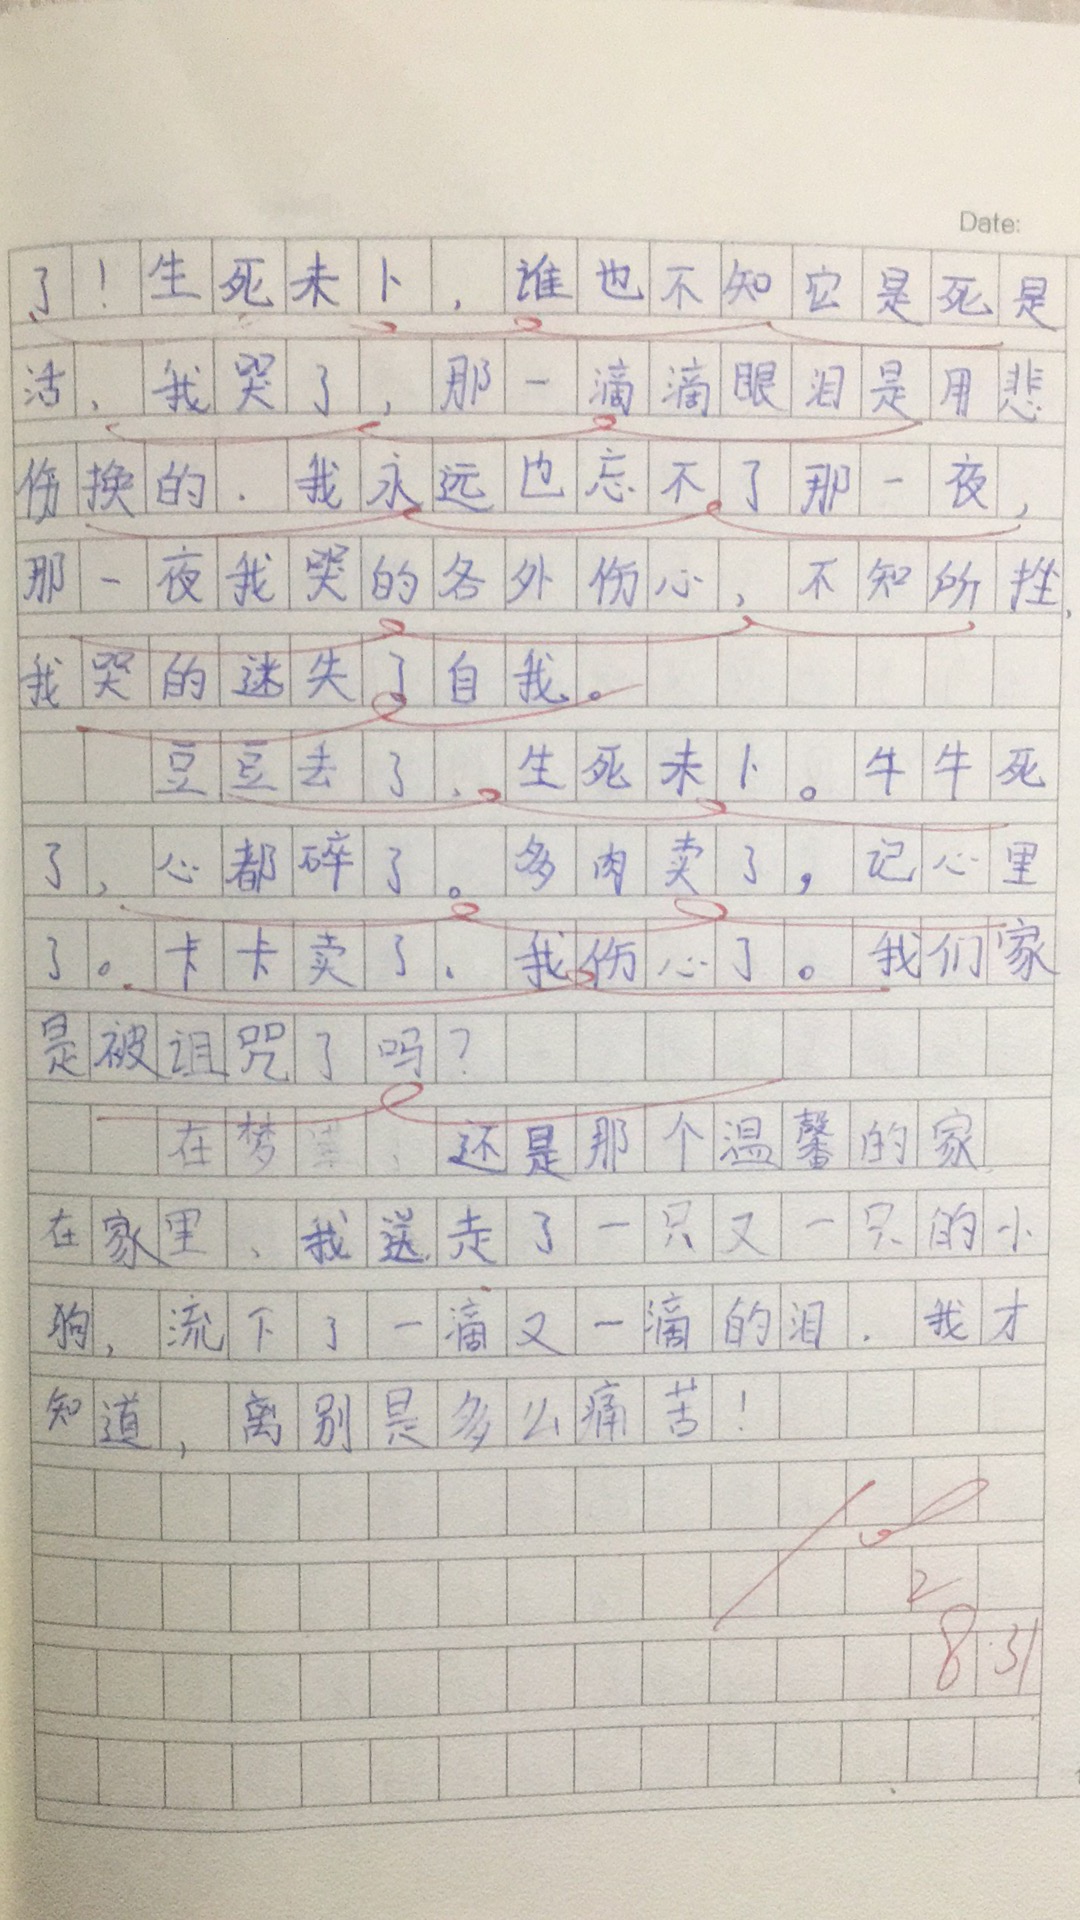 Date:
了！生死未卜，谁也不知它是死是
活，我哭了，那一滴滴眼泪是用悲
伤换的．我永远也忘不了那一夜，
那一夜我哭的各外伤心，不知所挫，
我哭的迷失了自我。
豆豆去了、生死未卜。牛牛死
了，心都碎了。多肉卖了，记心里
了。卡卡卖了、我伤心了。我们家
是被诅咒了吗？
在梦 、还是那个温馨的家
在家里、我送走了一只又一只的小
狗，流下了一滴又一滴的泪．我才
知道，离别是多么痛苦！
2
8.31